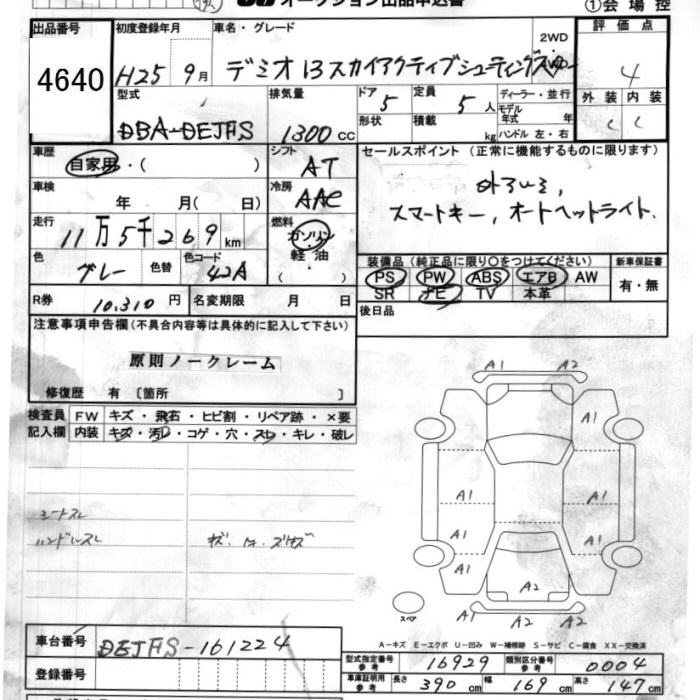 オークション出品申込書
①会場控
出品番号
4640
初度登録年月
H25 9月
車名・グレード
デミオ13スカイアクティブシューティングスター
2WD
評価点
4
外装 内装
C C
型式
DBA-DEJFS
排気量
1300 cc
ドア 5
形状
定員 5 人
積載 kg
ディーラー・並行
モデル年式 年
ハンドル 左・右
車歴
自家用・( )
シフト
AT
車検
年 月( 日)
冷房
AAC
走行
11万5千269 km
燃料
ガソリン
軽油
( )
色
グレー
色替
色コード
42A
R券 10,310 円
名変期限 月 日
セールスポイント(正常に機能するものに限ります)
スマートキー, オートヘッドライト.
装備品(純正品に限り○をつけてください)
新車保証書
PS PW ABS エアB AW
SR ナビ TV 本革
有・無
後日品
注意事項申告欄(不具合内容等は具体的に記入して下さい)
原則ノークレーム
修復歴 有〔箇所 〕
検査員
記入欄
FW キズ・飛石・ヒビ割・リペア跡・×要
内装 キズ・汚レ・コゲ・穴・スレ・キレ・破レ
シートスレ
ハンドルスレ
A1 A2
A1 A1
A1 A1
A1 A1
A1 A2 A1
A1 A2
スペア
A-キズ E-エクボ U-凹み W-補修跡 S-サビ C-腐食 XX-交換済
車台番号
DEJFS-161224
登録番号
型式指定番号 参考 16929
類別区分番号 参考 0004
車庫証明用 参考 長さ 390 cm 幅 169 cm 高さ 147 cm